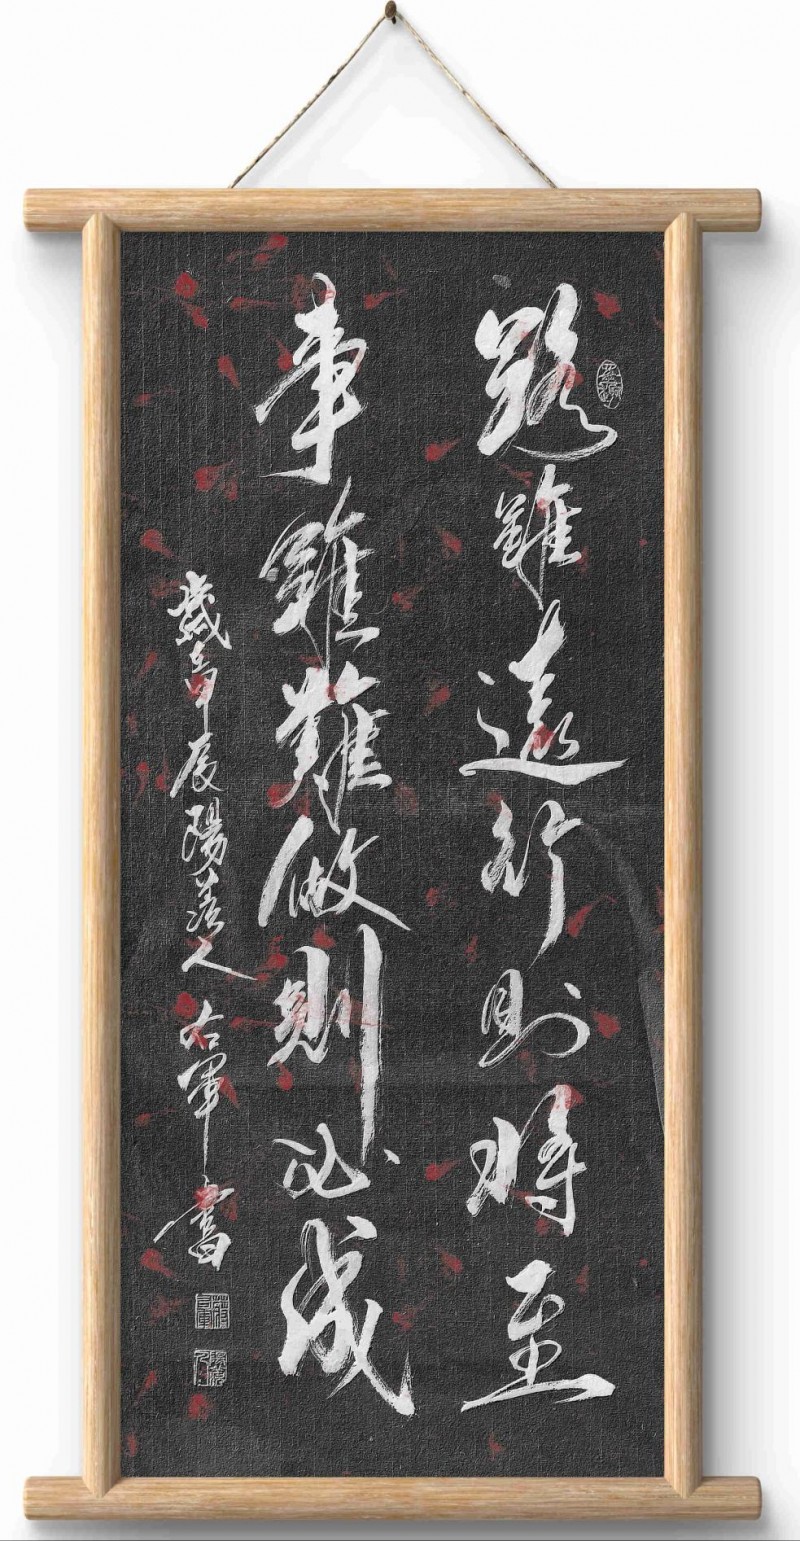 路雖遠行則將至
事雖難做則必成
歲甲辰陽羨人右軍書